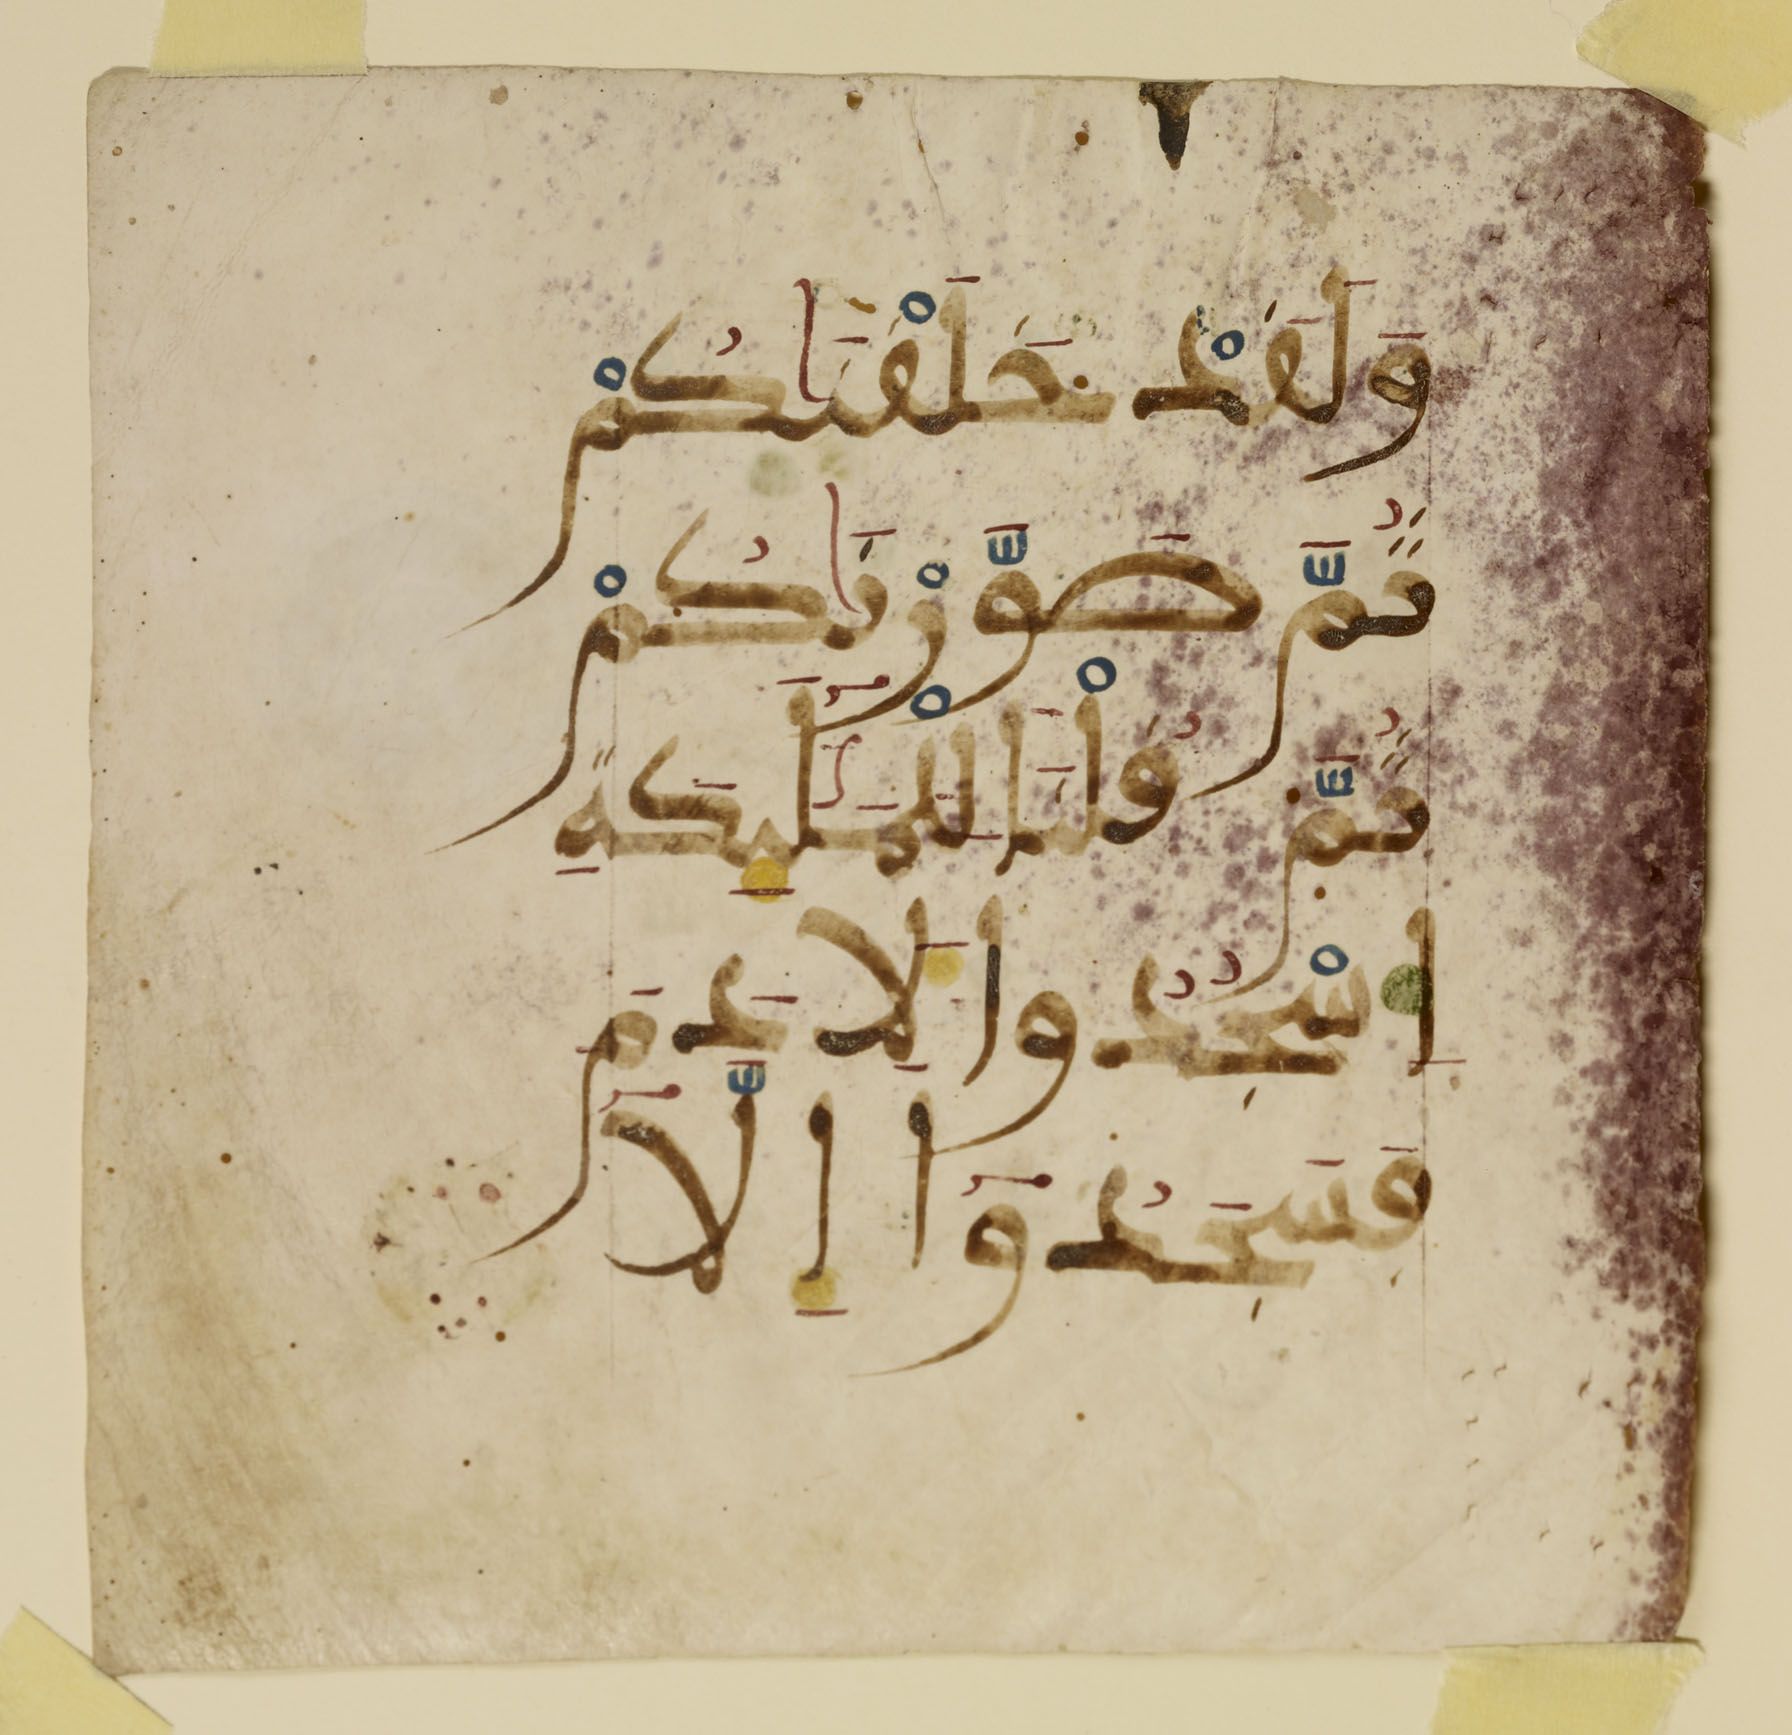 وَلَقَدْ خَلَقْنَاكُمْ
ثُمَّ صَوَّرْنَاكُمْ
ثُمَّ قُلْنَا لِلْمَلَٰٓئِكَةِ
اِسْجُدُوا لِأَدَمَ
فَسَجَدُوٓا إِلَّآ